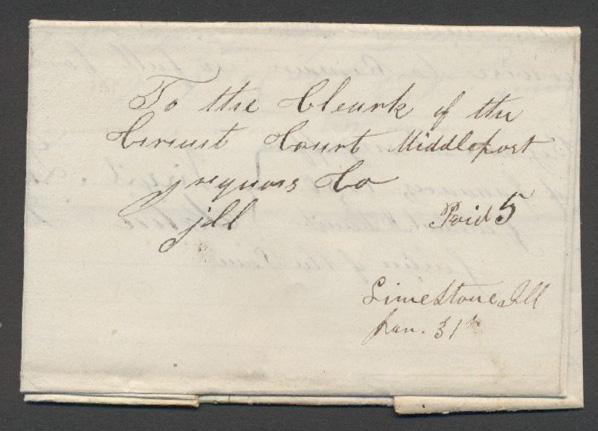 To the Cleark of the
Circuit Court Middleport
Iroquois Co
Ill Paid 5
Limestone Ill
Jan. 31st